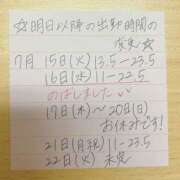 ☆明日以降の出勤時間の
変更☆
7月 15日(火) 13.5-23.5
16日(水) 11-22.5
のばしました
17日(木)~20日(日)
お休みです!
21日(月祝) 11-23.5
22日(火) 未定